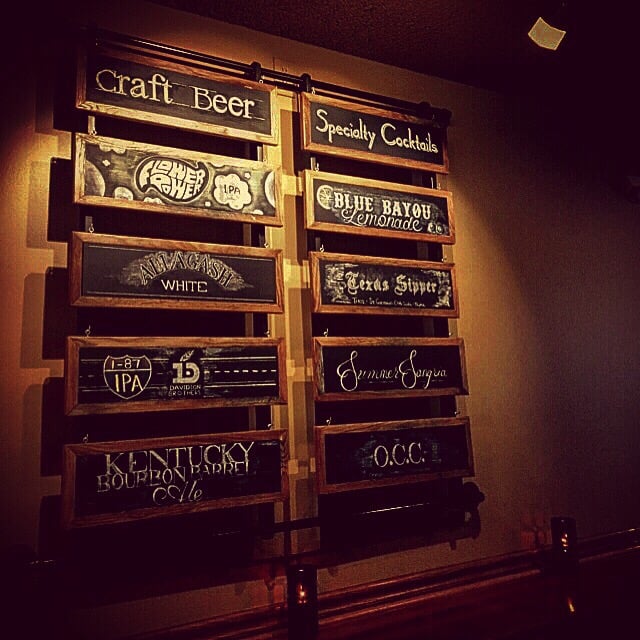 Craft Beer
FLOWER
POWER
IPA
ALLAGASH
WHITE
I-87
IPA
DAVIDSON
BROTHERS
KENTUCKY
BOURBON BARREL
Ale
Specialty Cocktails
BLUE BAYOU
Lemonade
Texas Sipper
Summer Sangria
O.C.C.